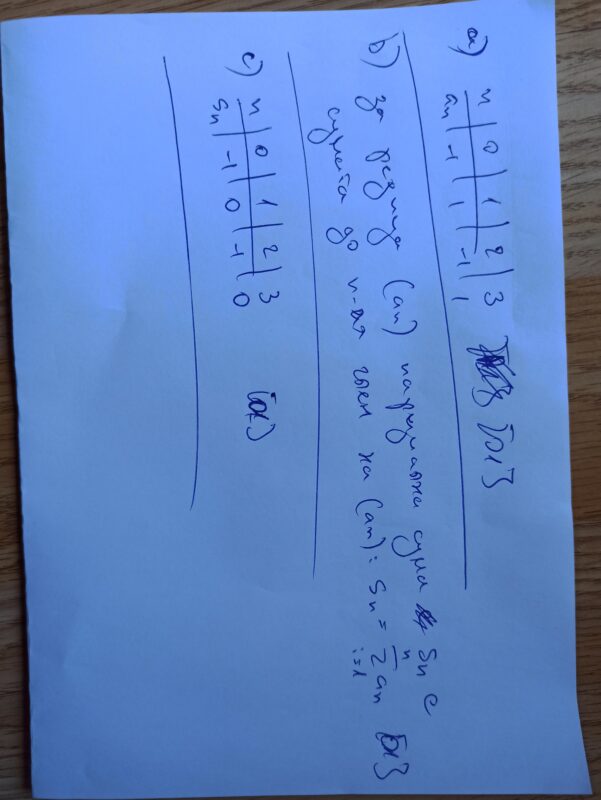 a) n | 0 | 1 | 2 | 3
an | -1 | 1 | -1 | 1 [01]
b) за редица (an) парциална сума Sn е
сумата до n-ия член на (an): Sn = n∑i=1 an [01]
c) n | 0 | 1 | 2 | 3
Sn | -1 | 0 | -1 | 0 [01]